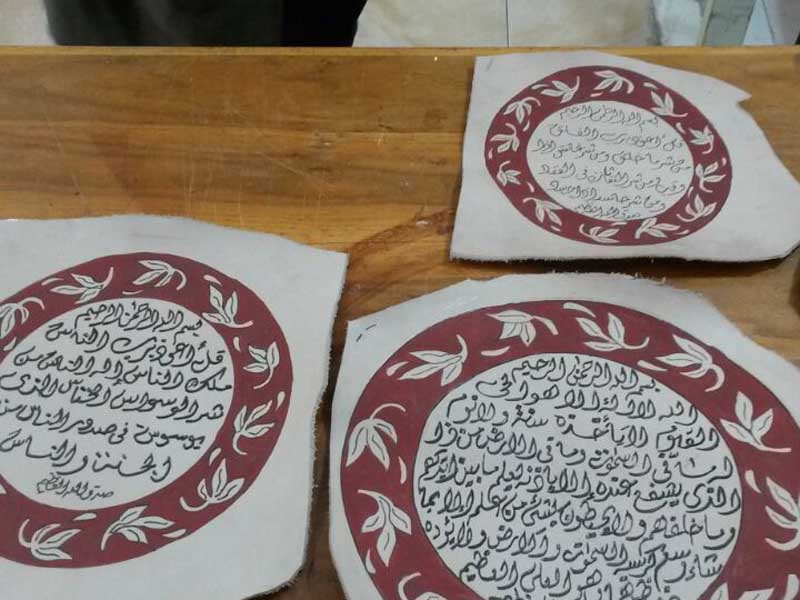 بسم الله الرحمن الرحيم
قل أعوذ برب الفلق
من شر ما خلق ومن شر غاسق إذا
وقب ومن شر النفاثات في العقد
ومن شر حاسد إذا حسد
صدق الله العظيم
بسم الله الرحمن الرحيم
قل أعوذ برب الناس
ملك الناس إله الناس من
شر الوسواس الخناس الذي
يوسوس في صدور الناس من
الجنة والناس
صدق الله العظيم
بسم الله الرحمن الرحيم
الله لا إله إلا هو الحي
القيوم لا تأخذه سنة ولا نوم
له ما في السموت وما في الأرض من ذا
الذي يشفع عنده إلا بإذنه يعلم ما بين أيديهم
وما خلفهم ولا يحيطون بشئ من علمه إلا بما
شاء وسع كرسيه السموت والأرض ولا يؤده
حفظهما وهو العلي العظيم